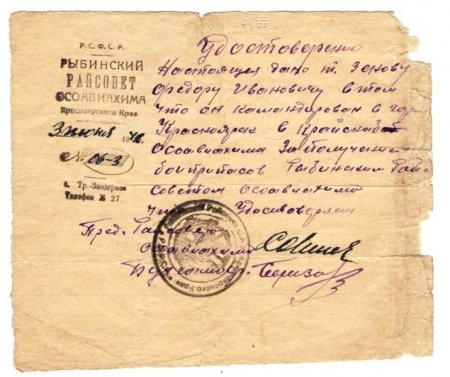 Р. С. Ф. С. Р.
РЫБИНСКИЙ
РАЙСОВЕТ
ОСОАВИАХИМА
Красноярского Края
3 июня
№ 06-3
с. Тр.-Заозерное
Телефон № 27.
Удостоверение
Настоящее дано т. Зенову
Федору Ивановичу в том
что он командирован в гор
Красноярск в Крайснаб
Осоавиахима За получени
боиприпасов Рыбинским Рай
советом Осоавиахима
что и Удостоверяем
Пред. Райсовета
Осоавиахима